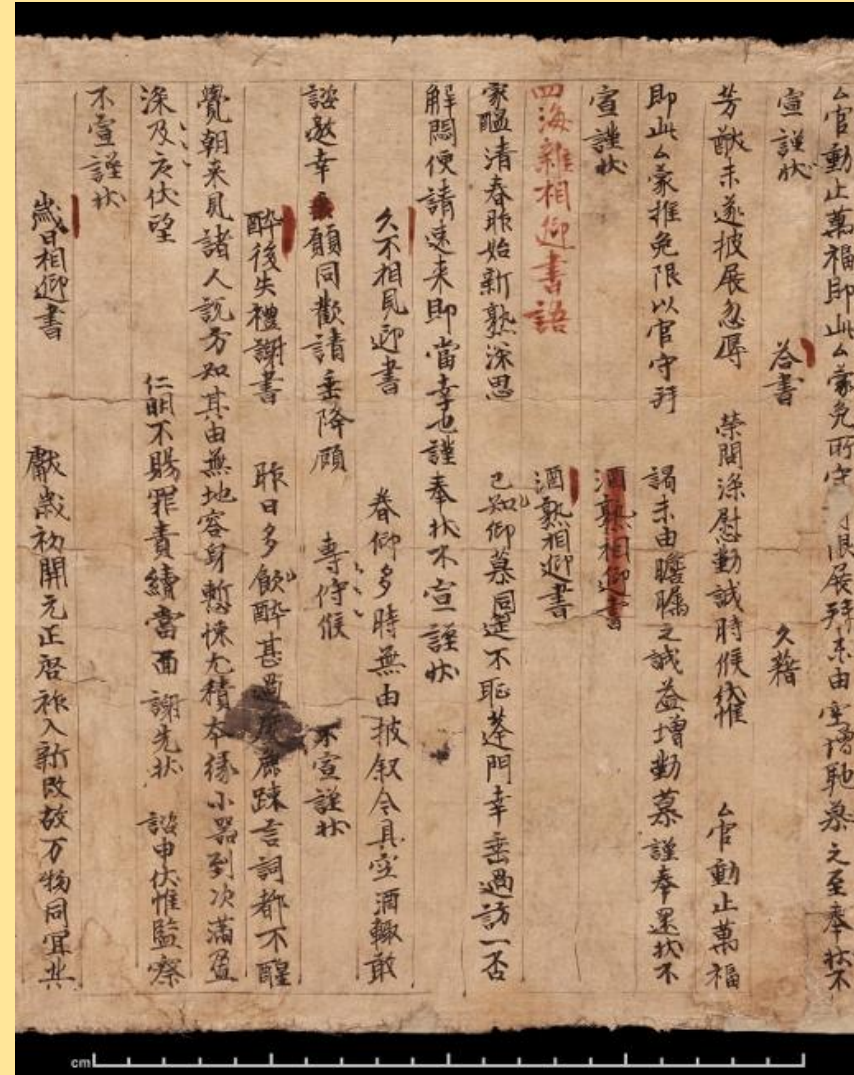 厶官動止萬福即此厶蒙免所守有限展拜未由空增馳慕之至奉狀不
宣謹狀 答書 久藉
芳猷未遂披展忽辱 榮問深慰勤誠時候伏惟 厶官動止萬福
即此厶蒙推免限以官守拜 謁未由瞻矚之誠益增勤慕謹奉還狀不
宣謹狀 酒熟相迎書
四海雜相迎書語 酒熟相迎書
家醞清春昨始新熟深思 已知仰慕同筵不恥蓬門幸垂過訪一否
解悶便請速來即當幸也謹奉狀不宣謹狀
久不相見迎書 眷仰多時無由披叙令具空酒輙敢
諮邀幸垂願同歡請垂降顧 專侍候 不宣謹狀
醉後失禮謝書 昨日多飲醉甚過度麁踈言詞都不醒
覺朝來見諸人說方知其由無地容身慙悚尤積本緣小器到次滿盈
深及尤伏望 仁明不賜罪責續當面謝先狀 諮申伏惟監察
不宣謹狀
歲日相迎書 獻歲初開元正啓祚入新改故万物同宜共
cm